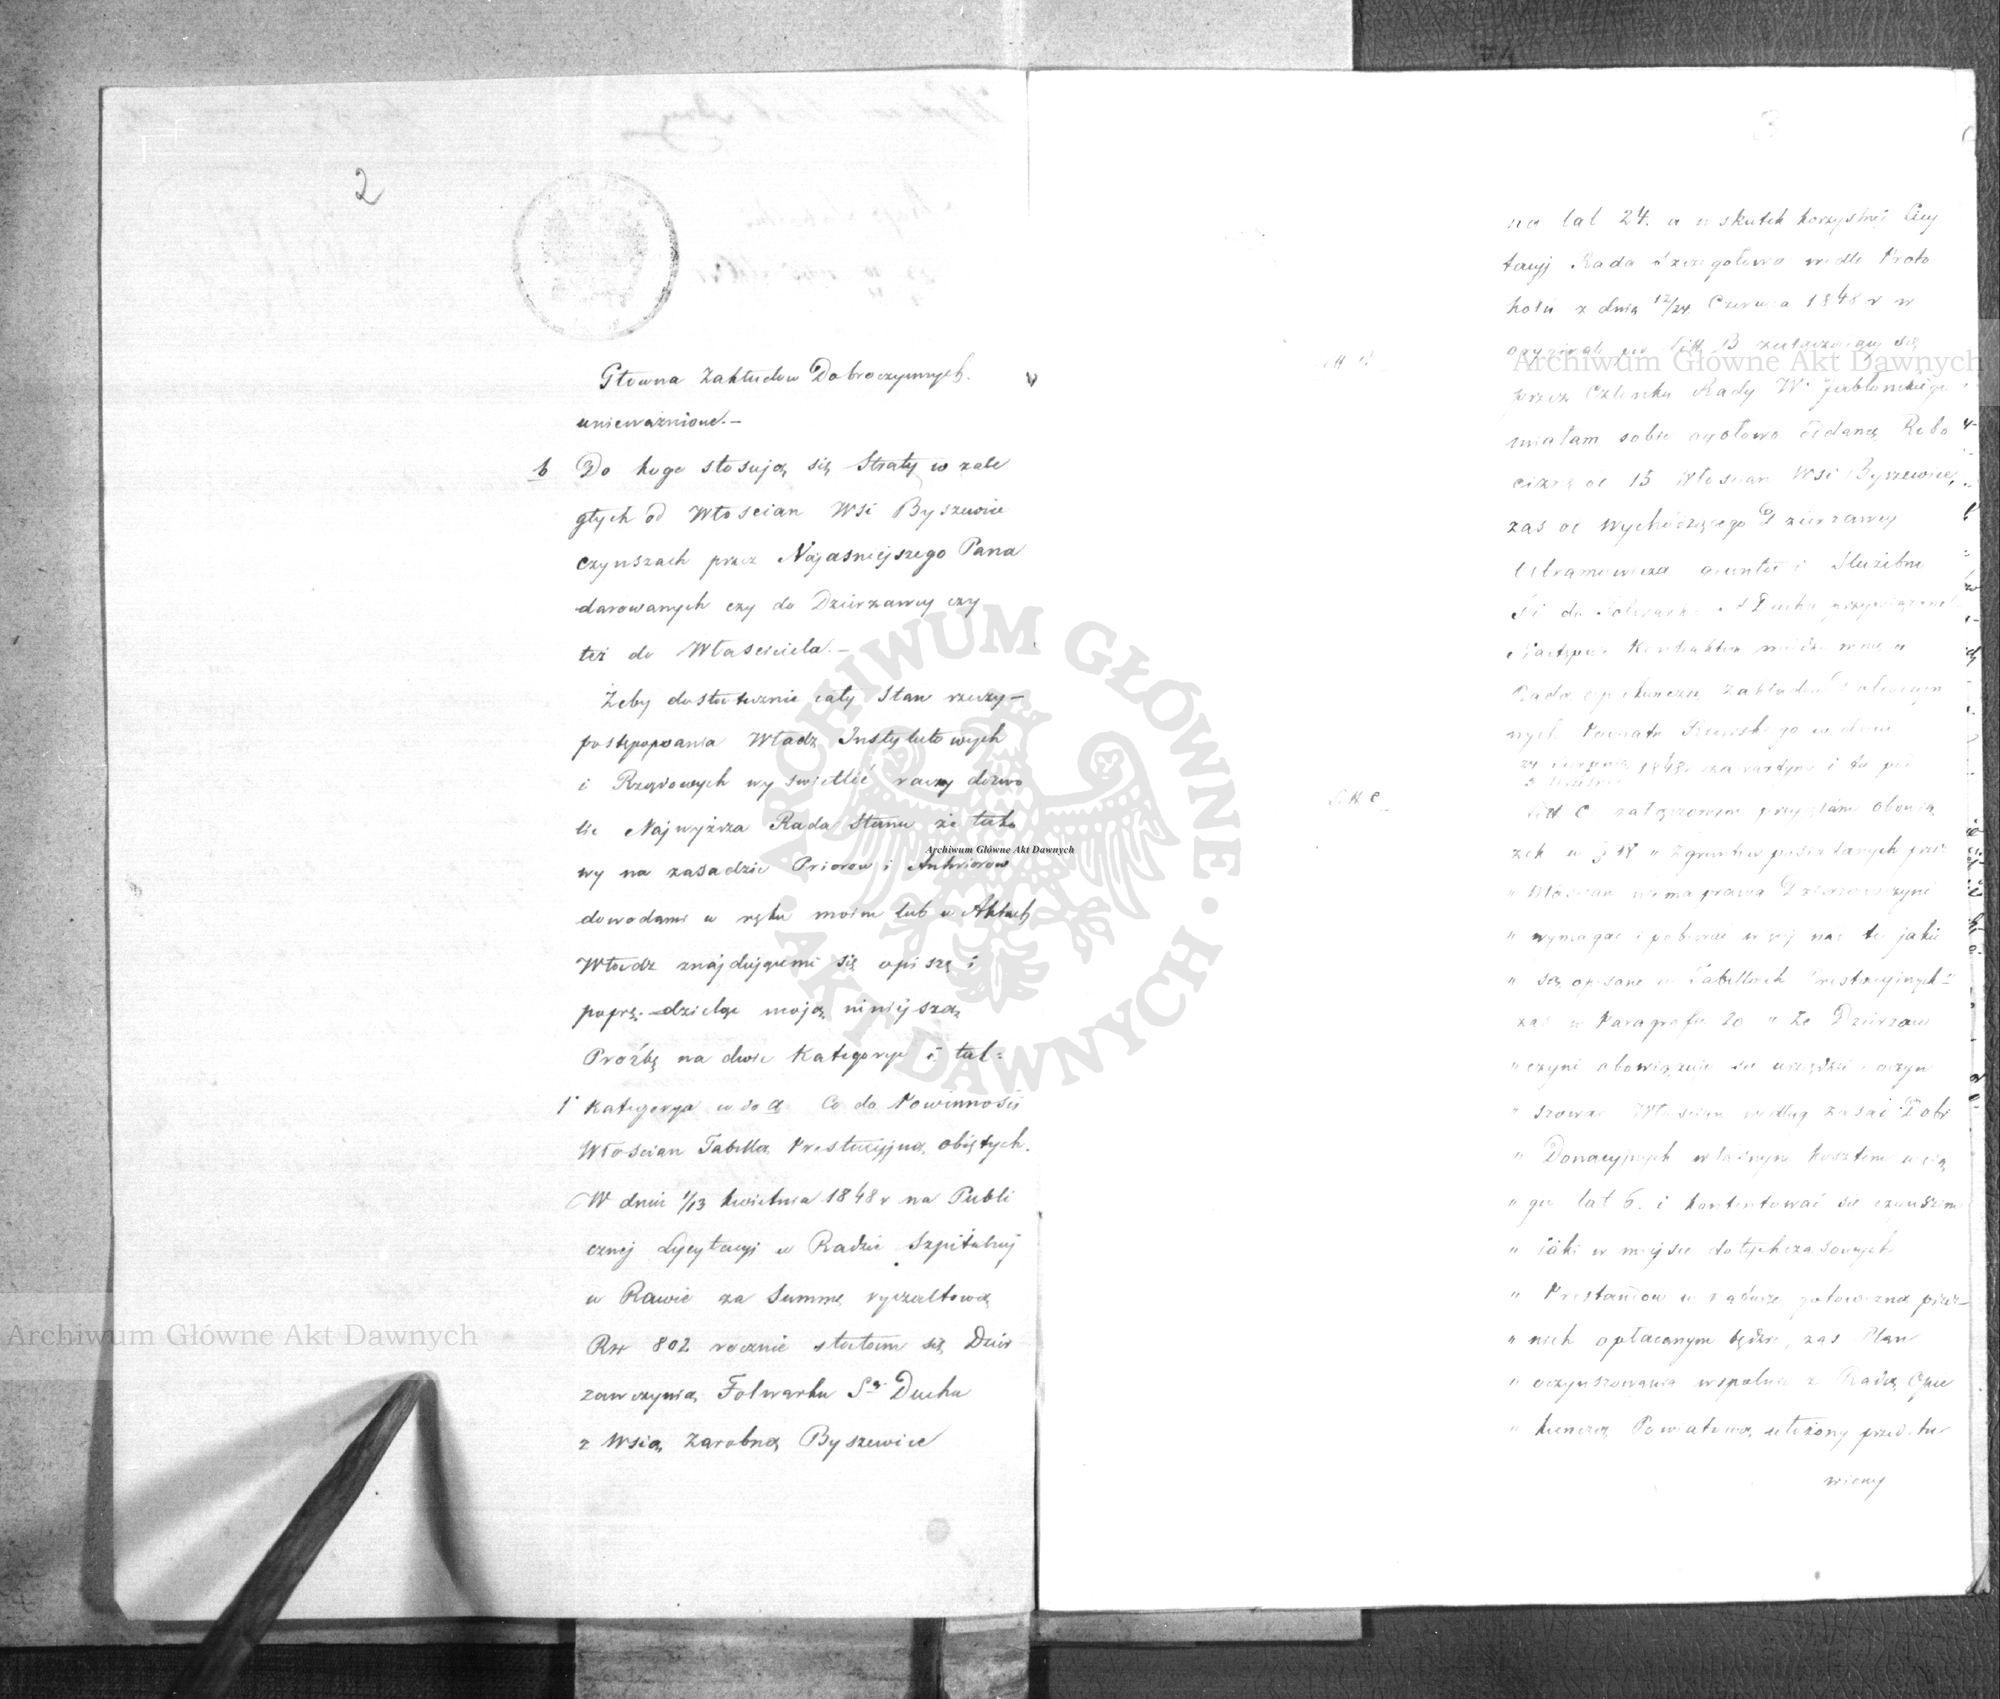 2
Głowna Zakładow Dobroczynnych.
unieważnione.—
b Do kogo stosują się Straty w zale
głych od Włoscian Wsi Byszewice
czynszach przez Najasniejszego Pana
darowanych czy do Dzierzawcy czy
też do Własciciela.—
Żeby dostatecznie cały Stan rzeczy—
postępopwania Władz Instytutowych
i Rządowych wyswietlić raczy dozwo
lic Najwyższa Rada Stanu że tako
wy na zasadzie Priorow i Anteriorow
dowodami w ręku moim lub w Aktach
Władz znajdującemi się opiszę i
poprę.— dzieląc moją niniejszą
Prośbę na dwie Kategorye i tak=
1 Kategorya co do a Co do Powinności
Włoscian Tabellą Prestacyjną objętych.
W dniu 1/13 kwietnia 1848 r na Publi
cznej Lycytacyi w Radzie Szpitalnej
w Rawie za Summę ryczałtową
Rsr 802 rocznie stałam się Dzier
zawczynią Folwarku Sgo Ducha
z Wsią Zarobną Byszewice
3
na lat 24. a w skutek korzystnej Licy
tacyj Rada Szczegołowa wedle Proto
kołu z dnia 12/24 Czerwca 1848 r w
Litt B
przez Członka Rady W. Jabłonskiego
miałam sobie ogołowo oddaną Robo
ciznę od 15 Włoscian Wsi Byszewice,
zas od wychodzącego Dzierzawcy
Abramowicza grunta i Służebno
ści do Folwarku S Ducha przywiązane
Następnie Kontraktem między mną a
Radą opiekunczą Zakładow Dobroczyn
nych Powiatu Rawskiego w dniu
1848 r zawartym i tu pod
Litt C
Litt C załączonym przyjęłam obowią
zek w § 18 " Z gruntow posiadanych przez
" Włoscian niema prawa Dzierzawczyni
" wymagac i pobierac więcej nad to jakie
" są opisane w Tabellach Prestacyjnych"
zas w Paragrafie 20 " Że Dzierzaw
" czyni obowiązuje się urządzic i oczyn
" szowac Włoscian według zasad Dobr
" Donacyjnych własnym kosztem w cią
" gu lat 6. i kontentować się czynszem
" jaki w miejsce dotychczasowych
" Prestacyow w gotowizną przez—
" nich opłacanym będzie, zas Plan
" oczynszowania wspolnie z Radą Opie
" kunczą Powiatową ułożony przedsta
wiony
Archiwum Główne Akt Dawnych
Archiwum Główne Akt Dawnych
Archiwum Główne Akt Dawnych
ARCHIWUM GŁÓWNE
AKT DAWNYCH